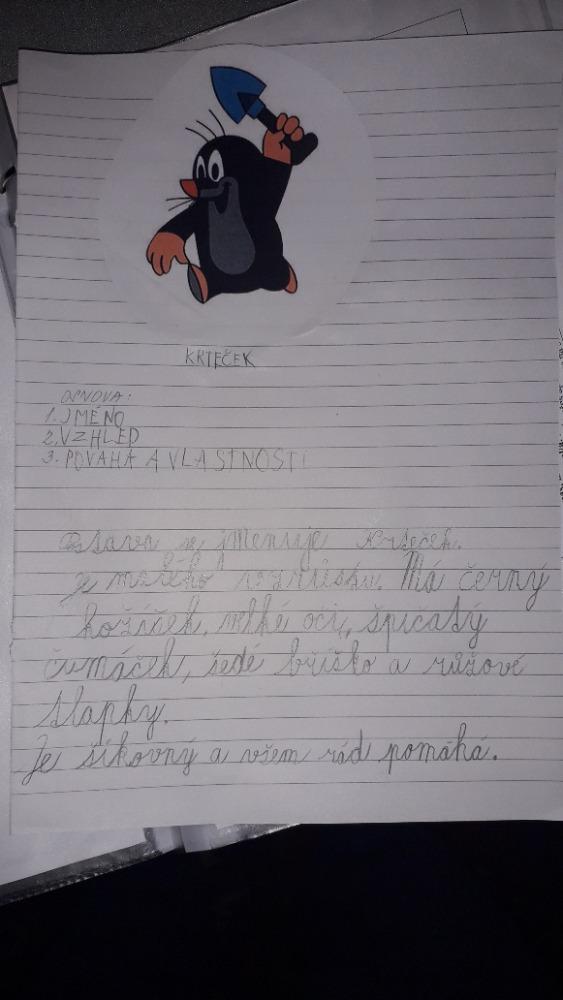 KRTEČEK
OSNOVA:
1. JMÉNO
2. VZHLED
3. POVAHA A VLASTNOSTI
Postava se jmenuje Krteček.
Je malého vzrůstu. Má černý
kožíšek, velké oči, špičatý
čumáček, šedé bříško a růžové
tlapky.
Je šikovný a všem rád pomáhá.